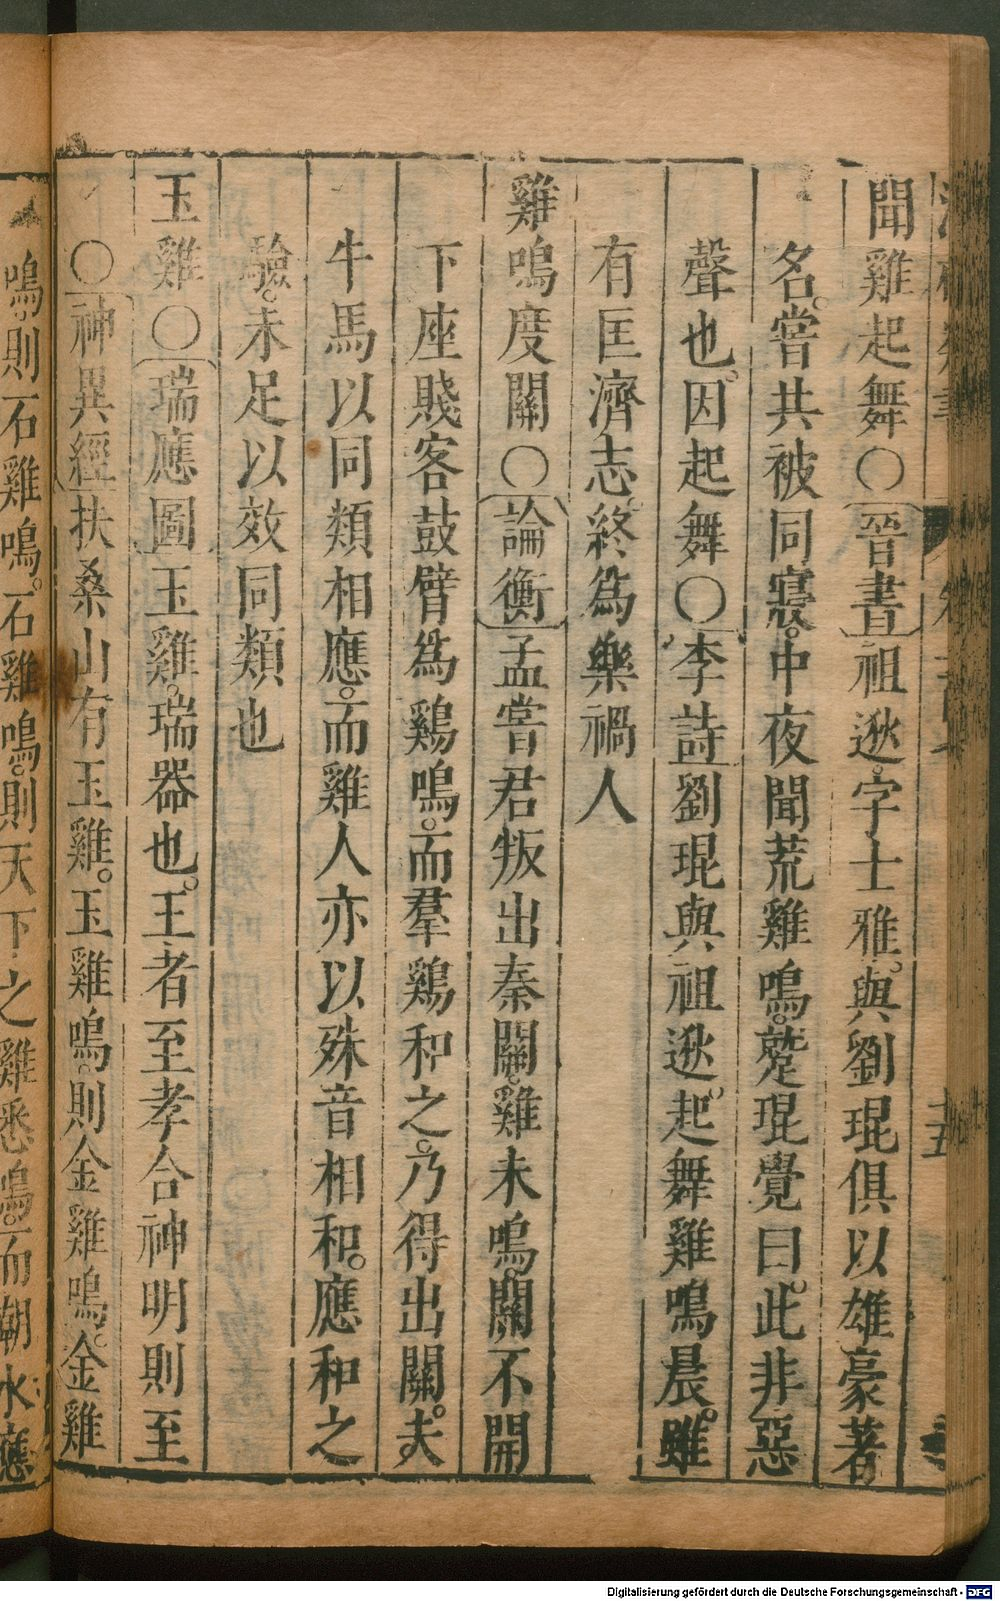 聞雞起舞〇晉書祖逖。字士雅。與劉琨俱以雄豪著
名。嘗共被同寢。中夜聞荒雞鳴。蹵琨覺曰。此非惡
聲也。因起舞〇李詩劉琨與祖逖。起舞雞鳴晨。雖
有匡濟志。終為樂禍人
雞鳴度關〇論衡孟嘗君叛出秦關。雞未鳴。關不開
下座賤客鼓臂為鷄鳴。而羣鷄和之。乃得出關。夫
牛馬以同類相應。而雞人亦以殊音相和。應和之
驗。未足以效同類也
玉雞〇瑞應圖玉雞。瑞器也。王者至孝合神明則至
〇神異經扶桑山有玉雞。玉雞鳴。則金雞鳴。金雞
鳴。則石雞鳴。石雞鳴。則天下之雞悉鳴。而朝水應
Digitalisierung gefördert durch die Deutsche Forschungsgemeinschaft - DFG